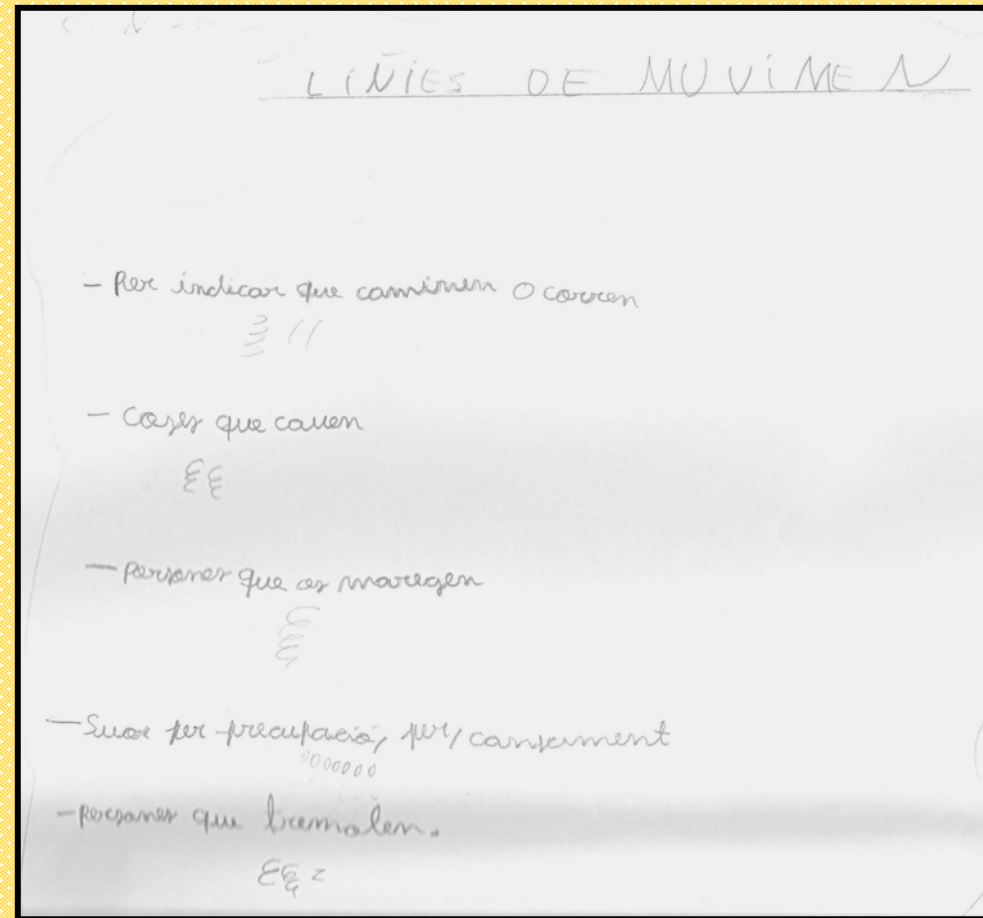 LIÑIES DE MUVIMEN
- Per indicar que caminen o corren
- Coses que cauen
- persones que es maregen
- Suor per precupació, per, cansament
- persones que tremolen.